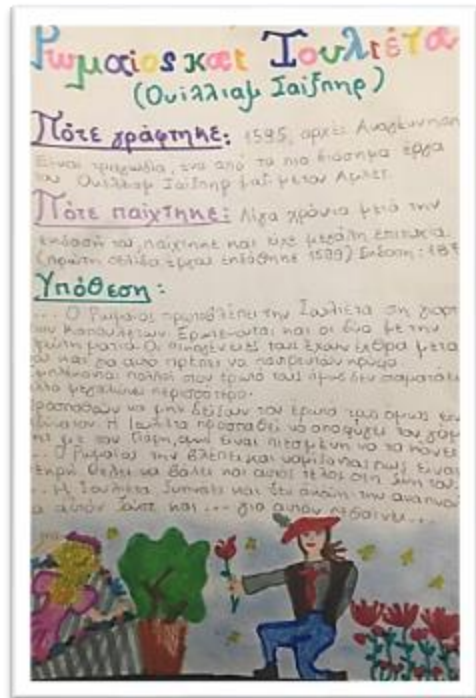 Ρωμαίος και Ιουλιέτα
(Ουίλλιαμ Σαίξπηρ)
Πότε γράφτηκε: 1595, αρχές Αναγέννησης
Είναι τραγωδία, ένα από τα πιο διάσημα έργα
του Ουίλλιαμ Σαίξπηρ μαζί με τον Άμλετ.
Πότε παίχτηκε: Λίγα χρόνια μετά την
έκδοσή του, παίχτηκε και είχε μεγάλη επιτυχία.
(πρώτη σελίδα έργου εκδόθηκε 1599) Έκδοση:
Υπόθεση:
... Ο Ρωμαίος πρωτοβλέπει την Ιουλιέτα στη γιορτή
των Καπουλέτων. Ερωτεύονται και οι δύο με την
πρώτη ματιά. Οι οικογένειές τους έχουν έχθρα μεταξύ
και για αυτό πρέπει να παντρευτούν κρυφά.
πολλοί στον έρωτά τους όμως δεν σταματάει
αλλά μεγαλώνει περισσότερο.
Προσπαθούν να μην δείξουν τον έρωτά τους όμως
αδύνατον. Η Ιουλιέτα προσπαθεί να αποφύγει τον γάμο
της με τον Πάρη, αλλά είναι πιεσμένη να το κάνει
... Ο Ρωμαίος την βλέπει και νομίζοντας πως είναι
νεκρή θέλει να βάλει και αυτός τέλος στη ζωή του.
... Η Ιουλιέτα ξυπνάει και δεν ακούει την αναπνοή
για αυτόν ζούσε και ... για αυτόν πεθαίνει...